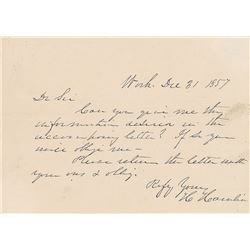 Wash. Dec 31 1857
Dr Sir
Can you give me the
information desired in the
accompanying letter? If so you
will oblige me —
Please return the letter with
your ans & oblig.
Rspy Yours
H Hamlin